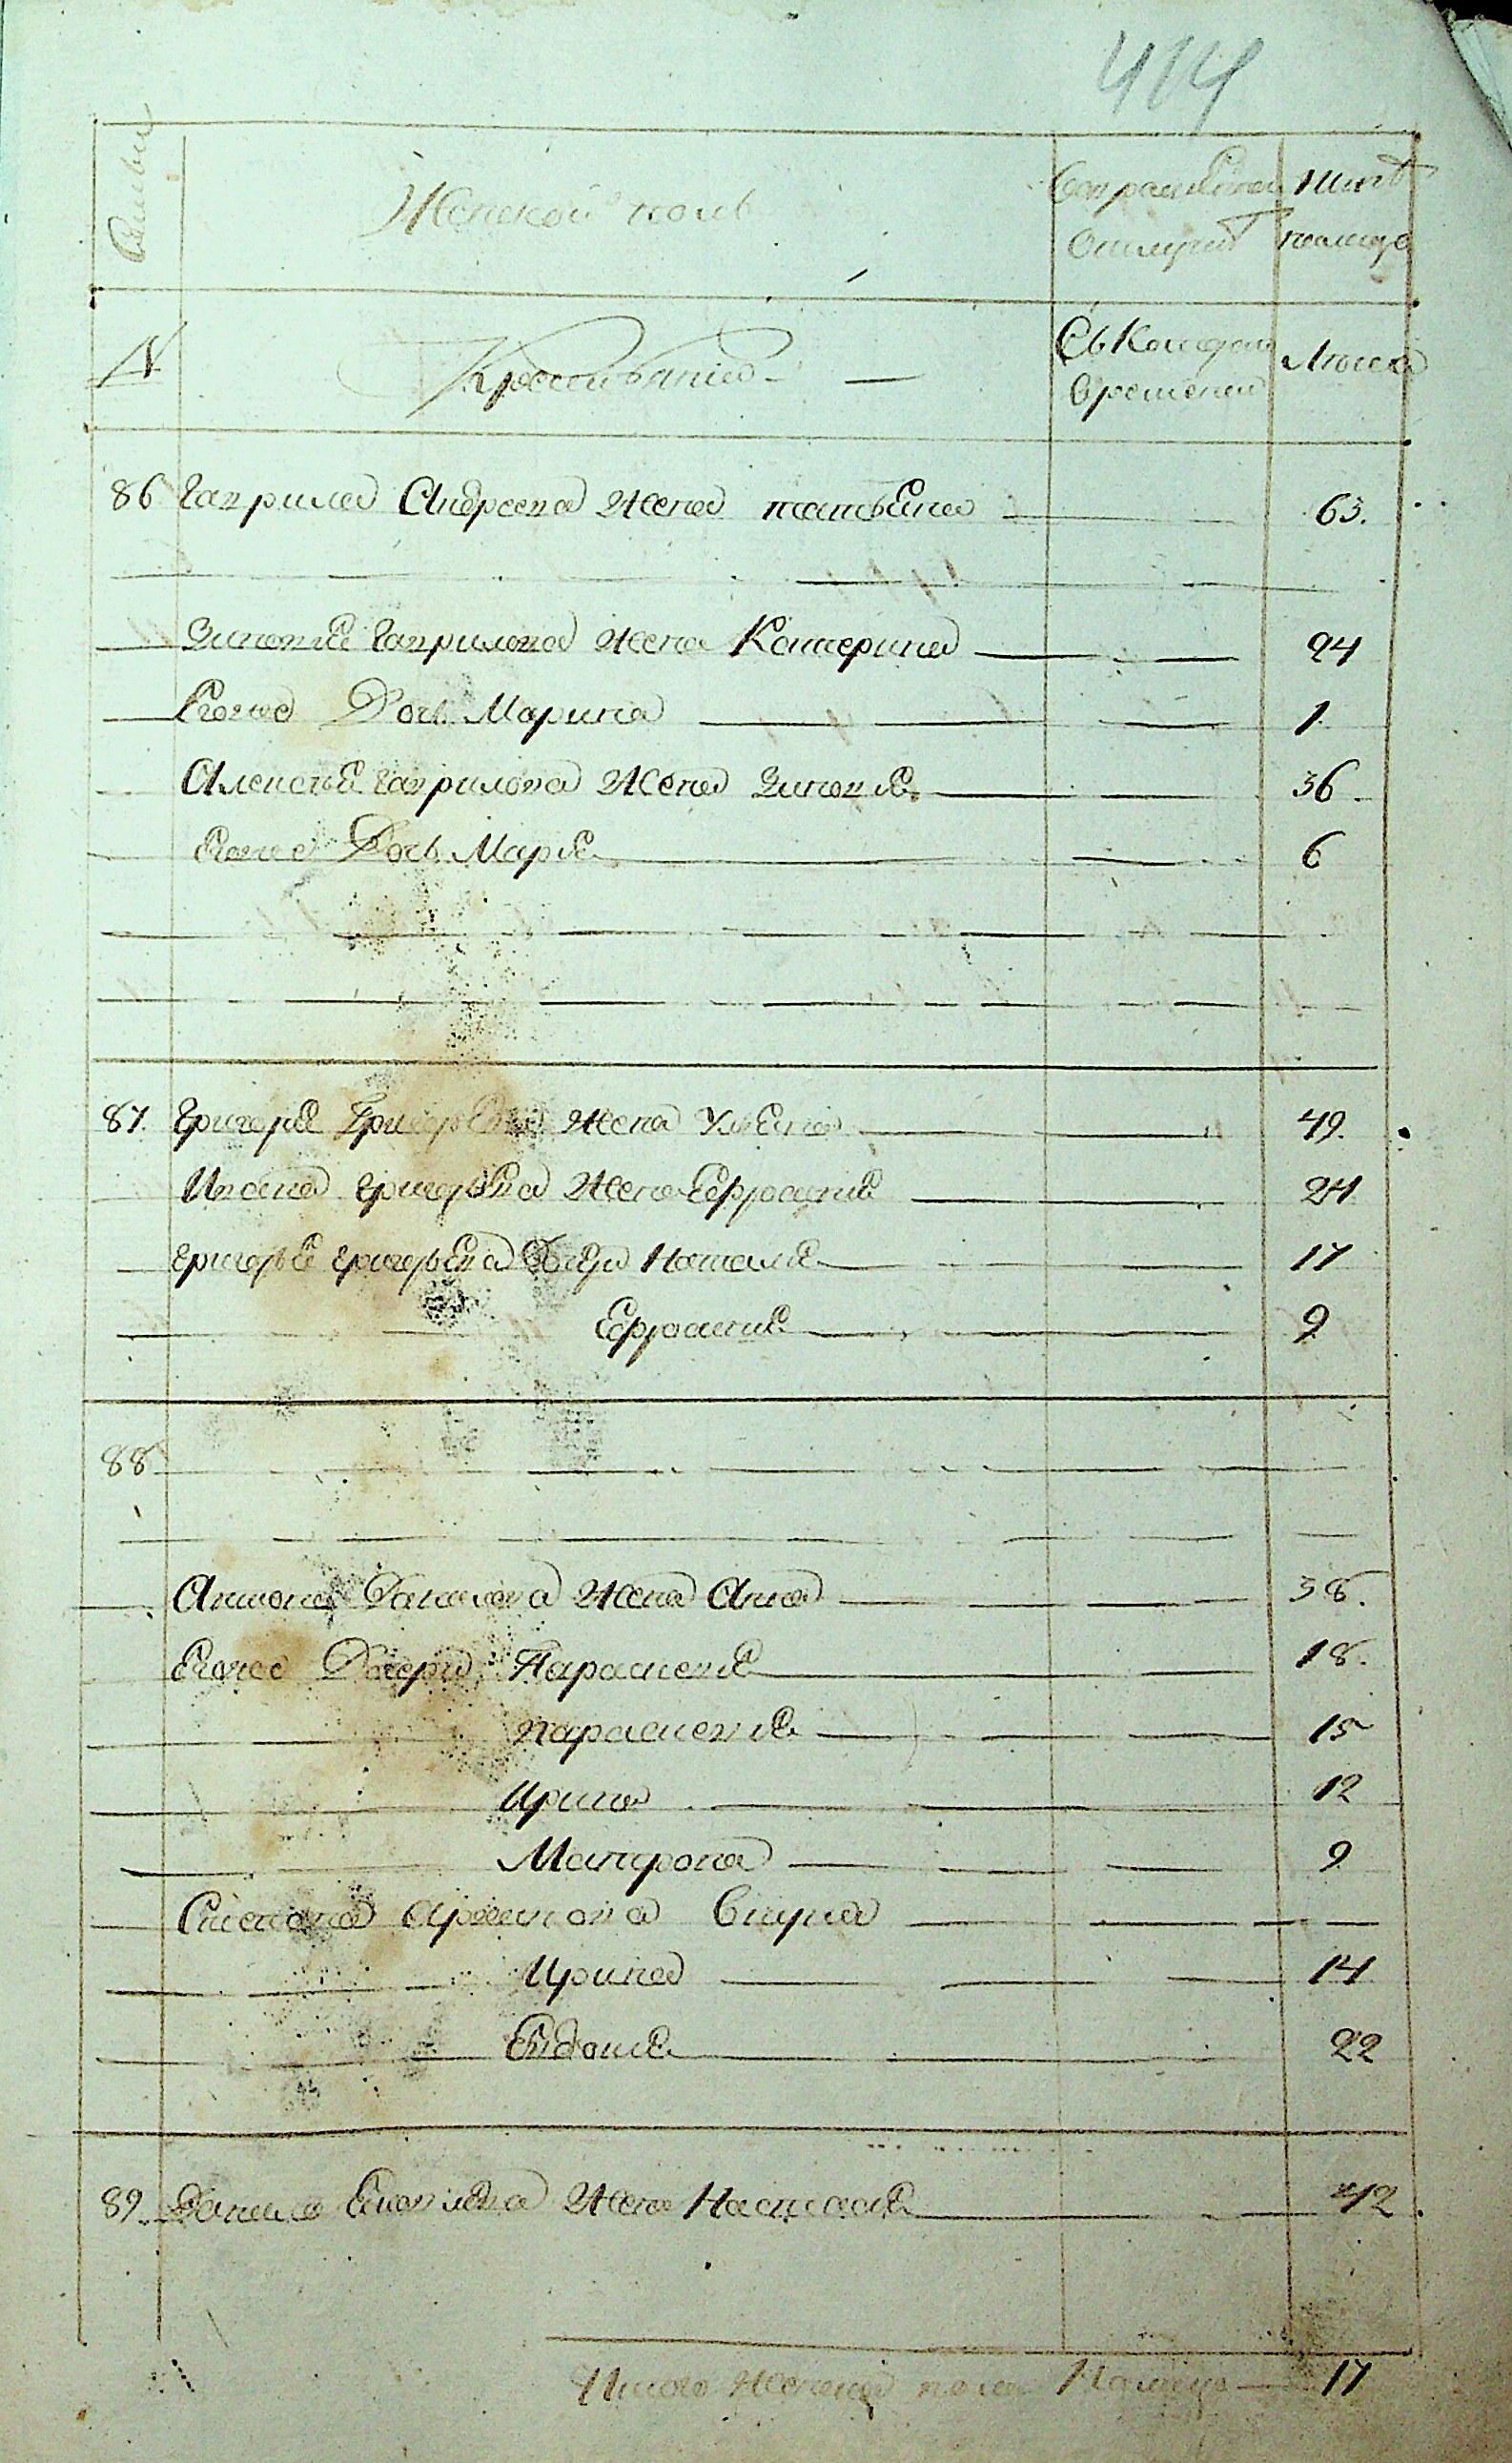 414
Семьи
Женской полъ
Во временной Отлучкѣ
Нынѣ на лицо
№
Крестьянѣ
Съ Котораго Времени
Лѣта
86 Гаврила Андреева Жена татьяна 63.
Зиновья Гаврилова жена Катерина 24
Евоже Дочь Марина 1
Алексѣя Гаврилова Жена Зиновья 36
Евоже Дочь Марья 6
87. Григорья Григорьева Жена Ульяна 49.
Ивана григорьева Жена Ефросинья 24
григорья григорьева Дочери Наталья 17
Ефросинья 9
88
Антона Данилова Жена Анна 38.
Евоже Дочери Парасковья 18.
парасковья 15
Ирина 12
Матрона 9
Степана Артемова Внуки
Ирина 14
Евдокия 22
89. Данила Жена Настасья 42
Итого Женска пола На лицо 17